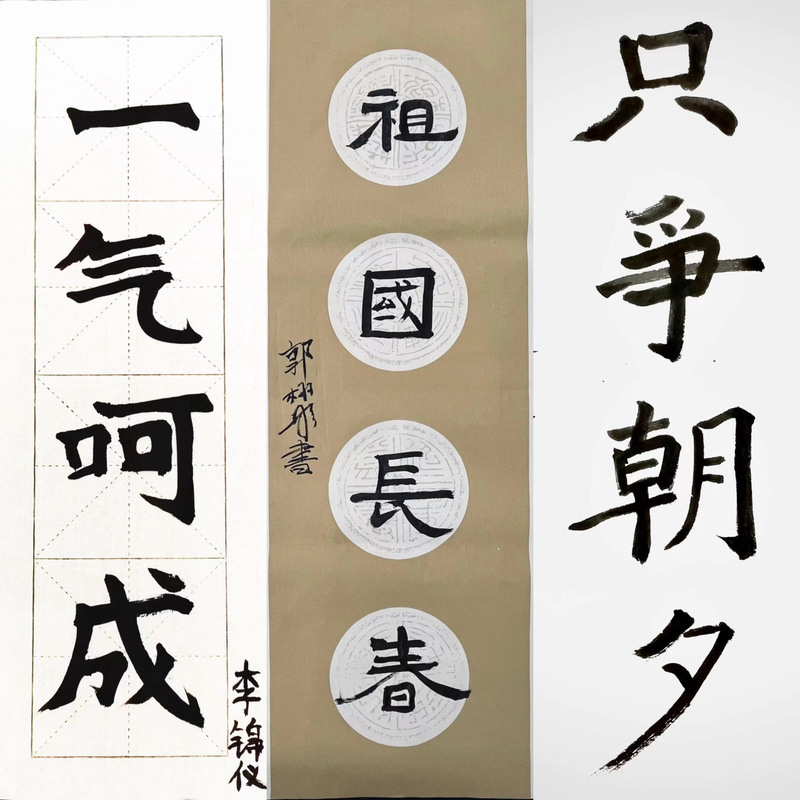 一气呵成
李锦仪
祖國長春
郭栩彤書
只爭朝夕